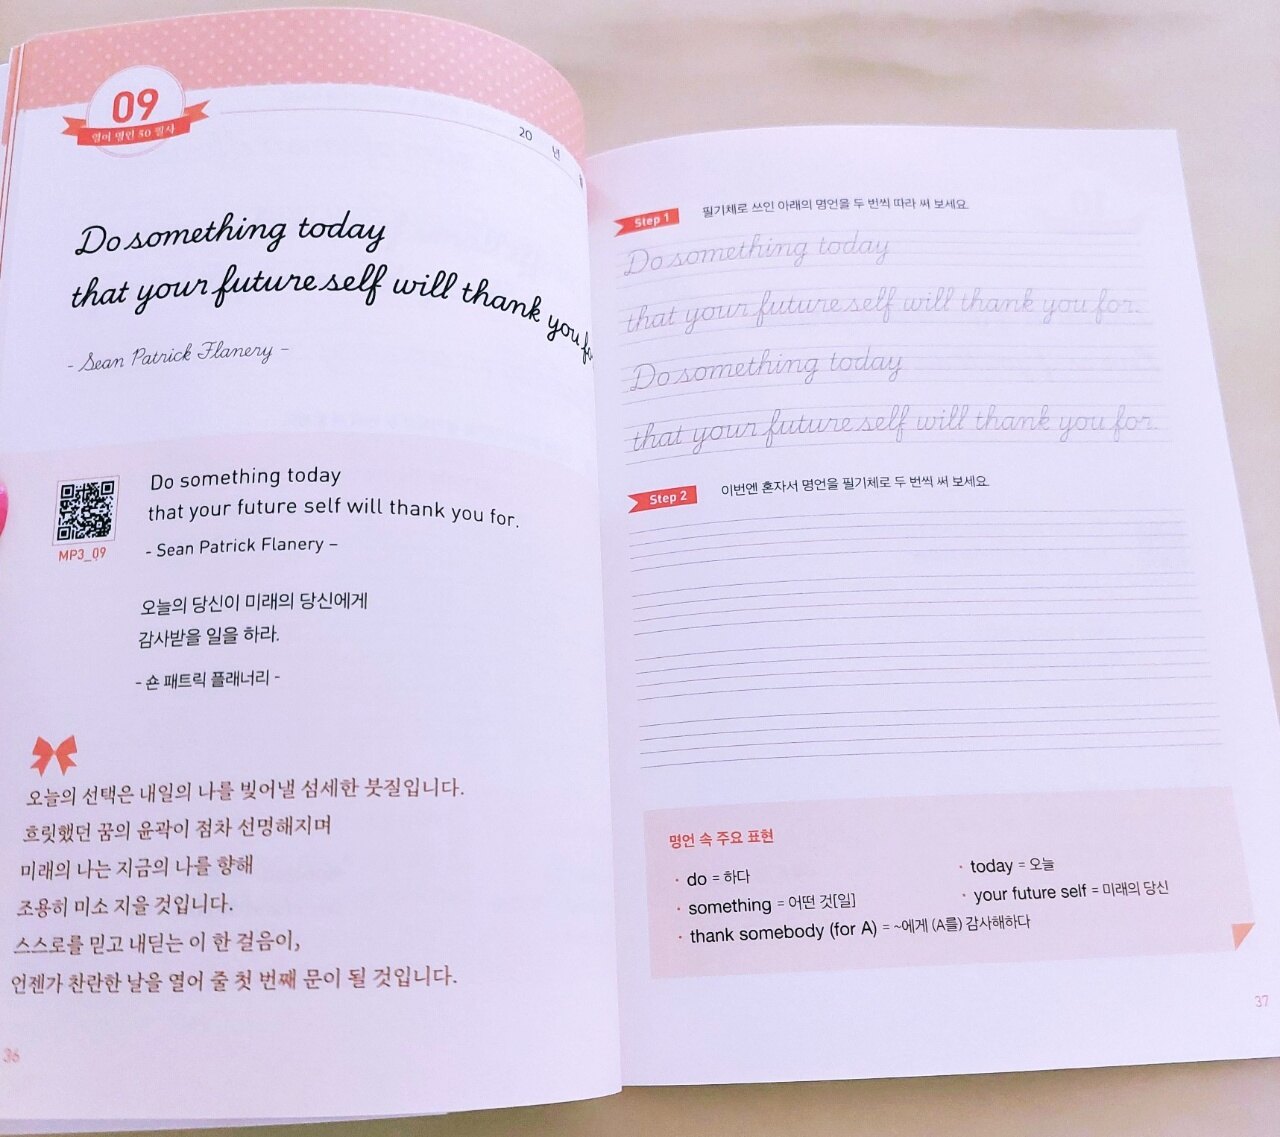 09
영어 명언 50 필사
20 년
Do something today
that your future self will thank you fo
- Sean Patrick Flanery -
MP3_09
Do something today
that your future self will thank you for.
- Sean Patrick Flanery -
오늘의 당신이 미래의 당신에게
감사받을 일을 하라.
- 숀 패트릭 플래너리 -
오늘의 선택은 내일의 나를 빚어낼 섬세한 붓질입니다.
흐릿했던 꿈의 윤곽이 점차 선명해지며
미래의 나는 지금의 나를 향해
조용히 미소 지을 것입니다.
스스로를 믿고 내딛는 이 한 걸음이,
언젠가 찬란한 날을 열어 줄 첫 번째 문이 될 것입니다.
36
Step 1 필기체로 쓰인 아래의 명언을 두 번씩 따라 써 보세요.
Do something today
that your future self will thank you for.
Do something today
that your future self will thank you for.
Step 2 이번엔 혼자서 명언을 필기체로 두 번씩 써 보세요.
명언 속 주요 표현
· do = 하다 · today = 오늘
· something = 어떤 것[일] · your future self = 미래의 당신
· thank somebody (for A) = ~에게 (A를) 감사해하다
37